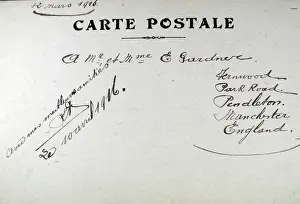 12 mars 1916.
CARTE POSTALE
A Mr et Mme E Gardner
Kenwood
Park Road.
Pendleton.
Manchester
England.
Avec mes meilleures amitiés
Le 10 avril 1916.